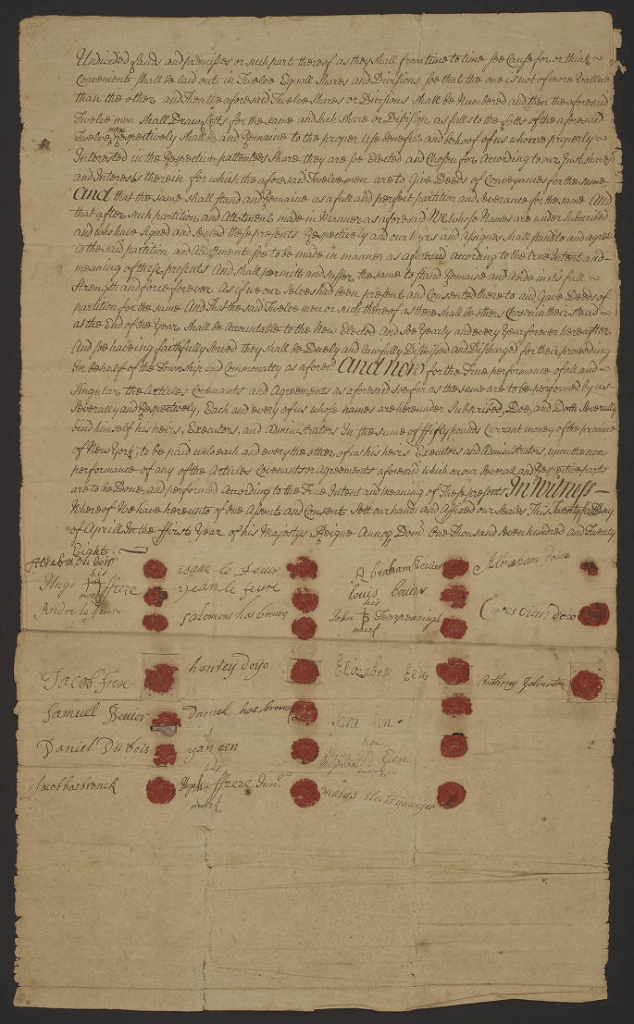 Undivided Lands and premisses or such part thereof as they shall from time to time see Cause for or think
Convenient shall be laid out in Twelve Equall Shares and Divisions soe that the one is not of more Vallue
than the other and Then the aforesaid Twelve Shares or Divisions shall be Numbered and then the aforesaid
Twelve men shall Draw Lotts for the same and Each Share or Division as falls to the Lotts of the aforesaid
Twelve men Respectively shall be and Remaine to the proper Use benefitt and behoof of us who are properly
Interested in the Respective pattentees Share they are soe Elected and Chosen for According to our Just shares
and Interests therein for which the aforesaid Twelve men are to Give Deeds of Conveyance for the same
And that the same shall stand and Remaine as a full and perfect partition and Severance for the same And
that after such partition and Allotment made in Manner as aforesaid We whose Names are under Subscribed
and who have signed and sealed these presents Respectively and our heirs and Assignes shall stand to and agree
to the said partition and Allotment soe to be made in manner as aforesaid according to the true Intent and
meaning of these presents And shall permitt and suffer the same to stand Remaine and Abide in its full
Strength and force forever As if we our Selves had been present and Consented thereto and Gave Deeds of
partition for the same And That the said Twelve men or such thereof as there shall be others Chosen in their stead
at the End of the Year shall be Accountable to the New Elected And soe Yearly and every Year forever hereafter
And soe haveing faithfully served they shall be Duely and Lawfully Dismised and Discharged for their proceeding
in behalf of the Township and Commonalty as afores.d And now for the True performance of all and
Singular the Articles Covenants and Agreements as aforesaid soe far as the same are to be performed by us
Severally and Respectively, Each and every of us whose names are hereunder Subscribed, Doe, and Doth Severally
bind himself his heirs, Executors, and Administrators In the sume of ffifty pounds Currant money of the province
of New York, to be paid unto each and every the other of us his heirs Executors and Administrators, upon the non
performance of any of the Articles Covenants or agreements aforesaid which on our Severall and Respective parts
are to be Done, and performed According to the True Intent and meaning of These presents In Witness
Whereof We have hereunto of one Assent and Consent Sett our hands and Affixed our Seales This Day
of Aprill In the ffirst Year of his Majestys Reigne Annoq Dom One Thousand Seven hundred and Twenty
Eight.
Abraham Dubois isaac le feuer Abraham Bevier Abraham doiau
Hugo his mark ffrere jean le fevre louis bevier
Andre le fevre salomon hasbrouq John his mark Terwarsingh Crisstian doiau
Jacob frer hantey doyo Elizabeth Een Anthony Yelverton
Samuel Bevier Daniel hasbrouq Sara
Daniel Dubois yan een his mark Een
Jacob hasbrouck Hugh his mark ffrere Jun.r matys slecht